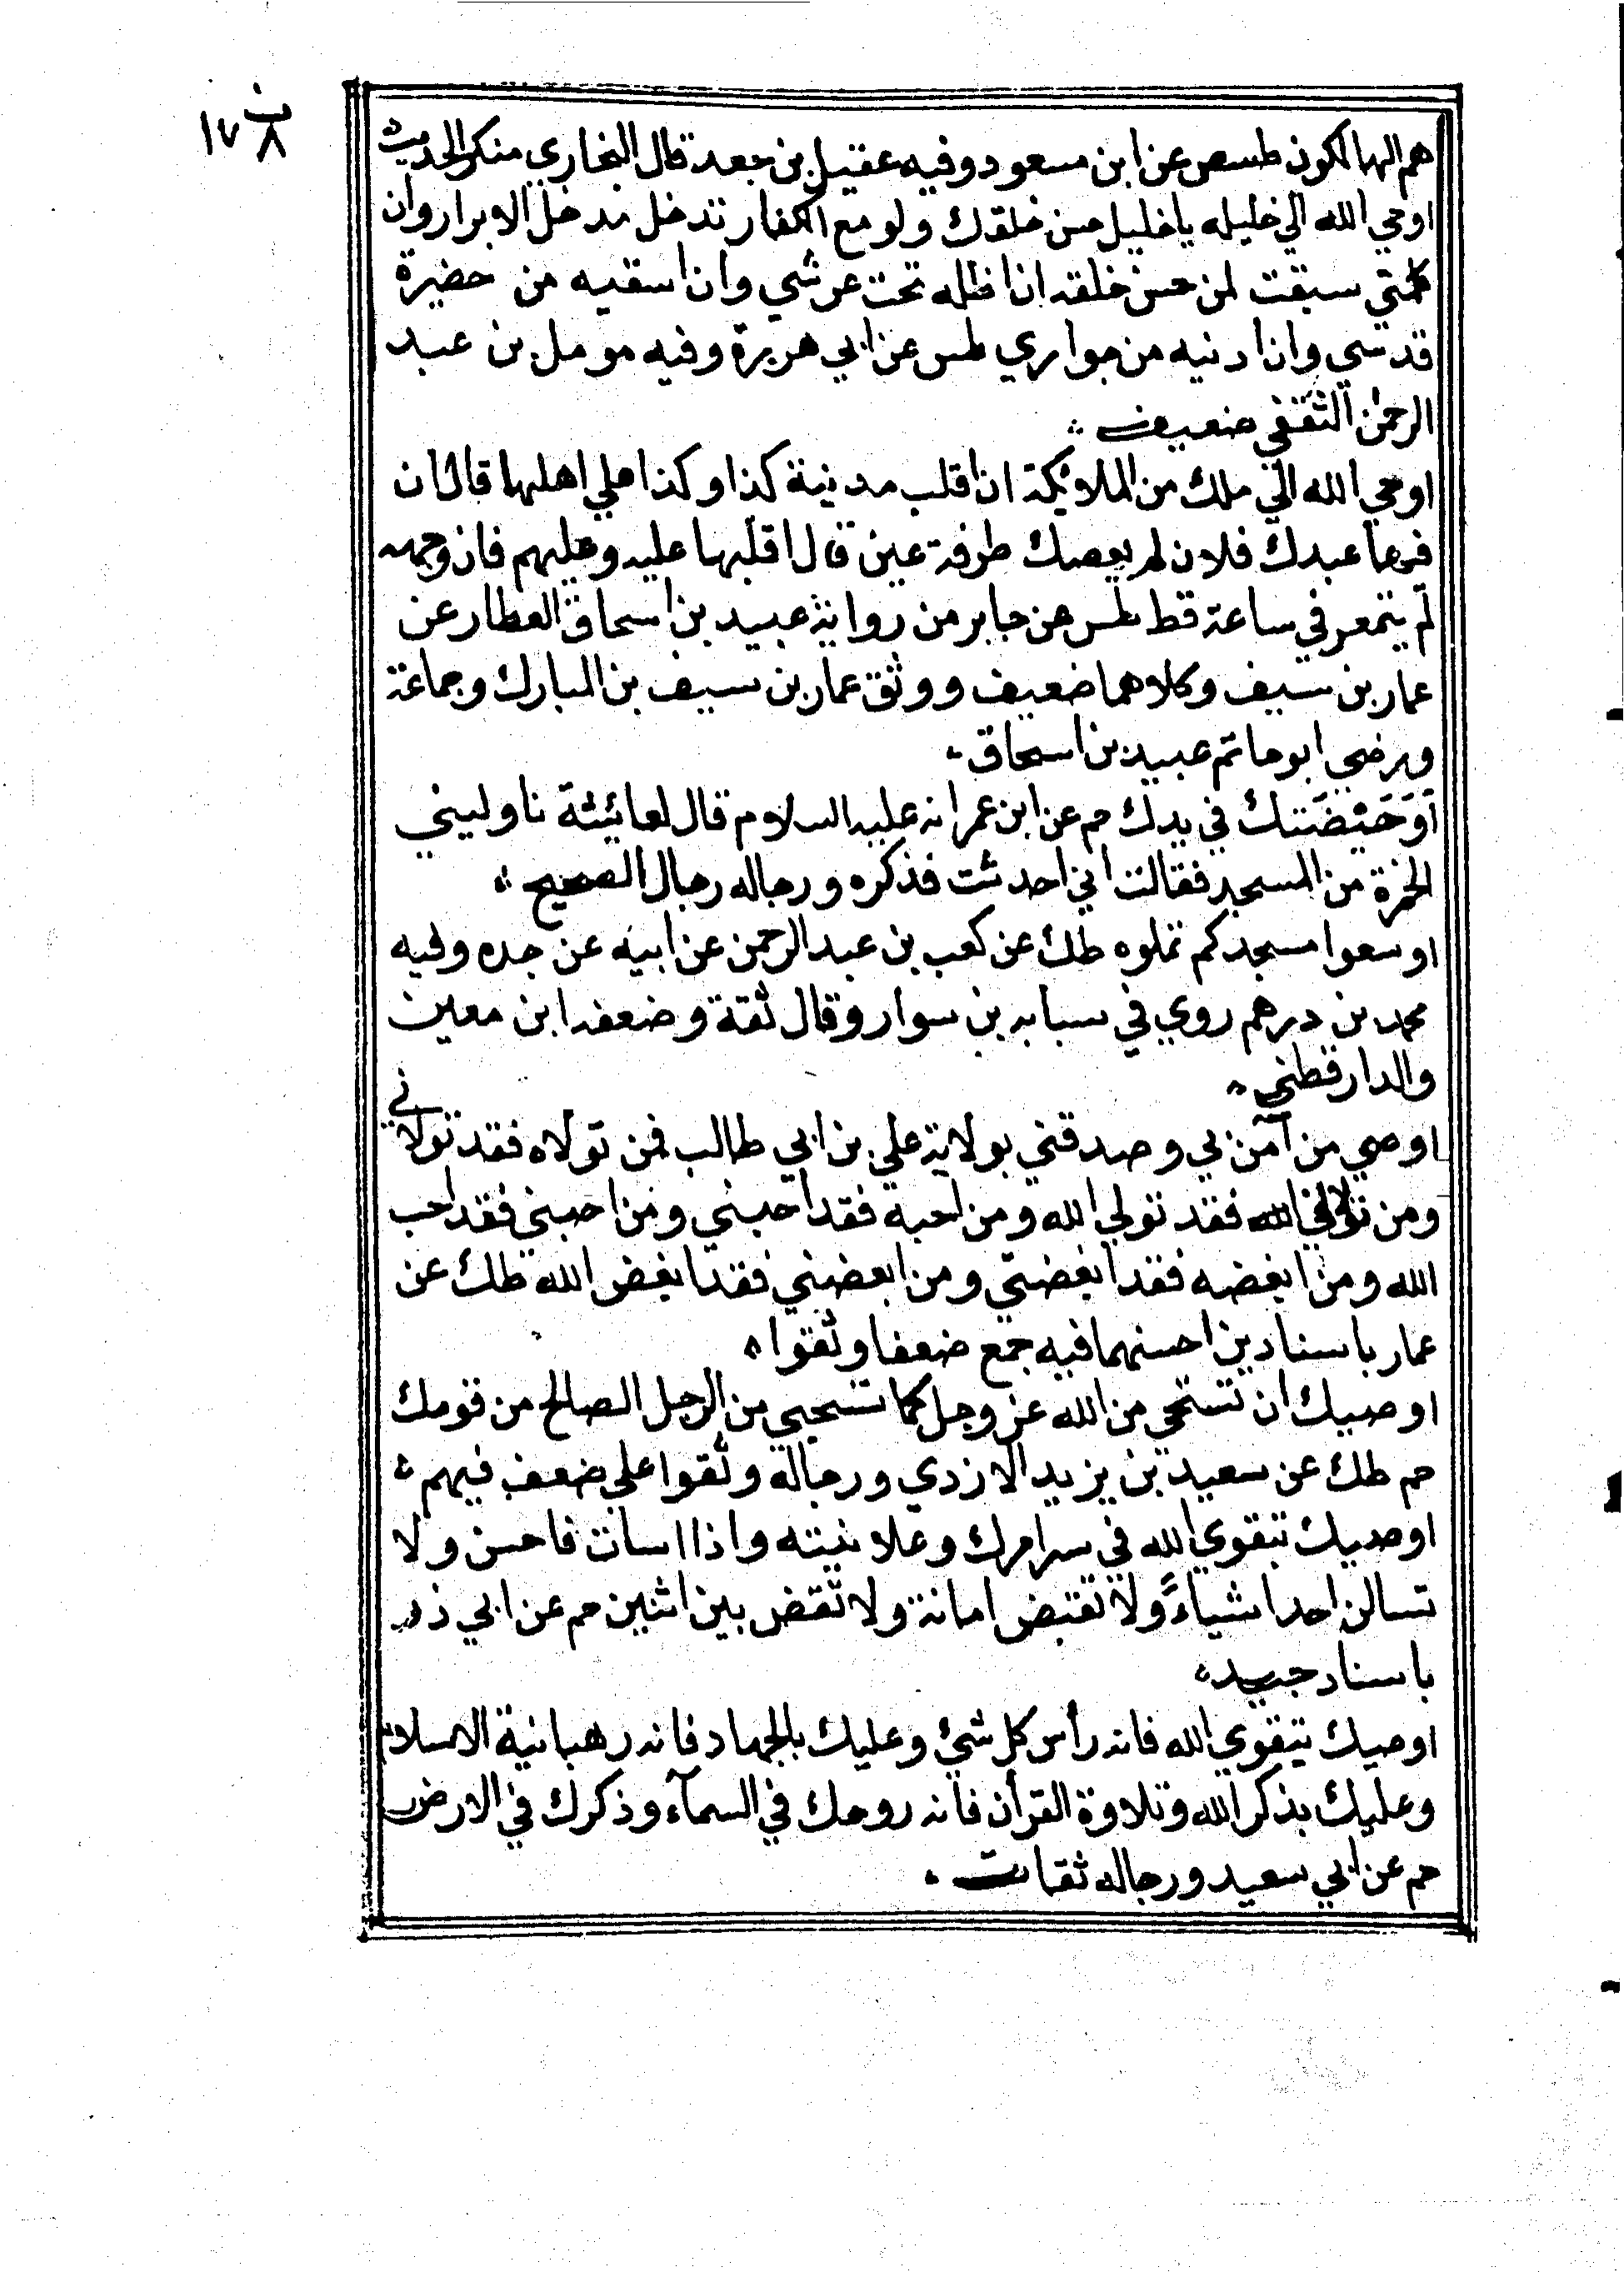 ١٧
هم الهالكون طسص عن ابن مسعود وفيه عقيل بن جعد قال البخاري منكر الحديث
اوحي الله الي خليله يا خليل حسن خلقك ولو مع الكفار تدخل مدخل الابرار وان
كلمتي سبقت لمن حسن خلقه ان اظله تحت عرشي وان اسقيه من حضيرة
قدسي وان ادنيه من جواري طس عن ابي هريرة وفيه مومل بن عبد
الرحمن الثقفي ضعيف
اوحي الله الي ملك من الملائكة ان اقلب مدينة كذا وكذا علي اهلها قال ان
فيها عبدك فلان لم يعصك طرفة عين قال اقلبها عليه وعليهم فان وجهه
لم يتمعر في ساعة قط طس عن جابر من رواية عبيد بن اسحاق العطار عن
عمار بن سيف وكلاهما ضعيف ووثق عمار بن سيف بن المبارك وجماعة
ورضي ابو حاتم عبيد بن اسحاق
اَوَحَيْضَتك في يدك حم عن ابن عمر انه عليه السلام قال لعائشة ناوليني
الخمرة من المسجد فقالت اني احدثت فذكره ورجاله رجال الصحيح
اوسعوا مسجدكم تملوه طك عن كعب بن عبد الرحمن عن ابيه عن جده وفيه
محمد بن درهم روي في سبابه بن سوار وقال ثقة وضعفه ابن معين
والدارقطني
اوصي من آمن بي وصدقني بولاية علي بن ابي طالب فمن تولاه فقد تولاني
ومن تولاني فقد تولي الله ومن احبه فقد احبني ومن احبني فقد احب
الله ومن ابغضه فقد ابغضني ومن ابغضني فقد ابغض الله طك عن
عمار باسنادين احسنهما فيه جمع ضعفا وثقوا
اوصيك ان تستحي من الله عز وجل كما تستحيي من الرجل الصالح من قومك
حم طك عن سعيد بن يزيد الازدي ورجاله وثقوا علي ضعف فيهم
اوصيك بتقوي الله في سرامرك وعلانيته واذا اسات فاحسن ولا
تسالن احدا شياءً ولا تقبض امانة ولا تقض بين اثنين حم عن ابي ذر
باسناد جيد
اوصيك بتقوي الله فانه رأس كل شئ وعليك بالجهاد فانه رهبانية الاسلام
وعليك بذكر الله وتلاوة القرأن فانه روحك في السمآء وذكرك في الارض
حم عن ابي سعيد ورجاله ثقات